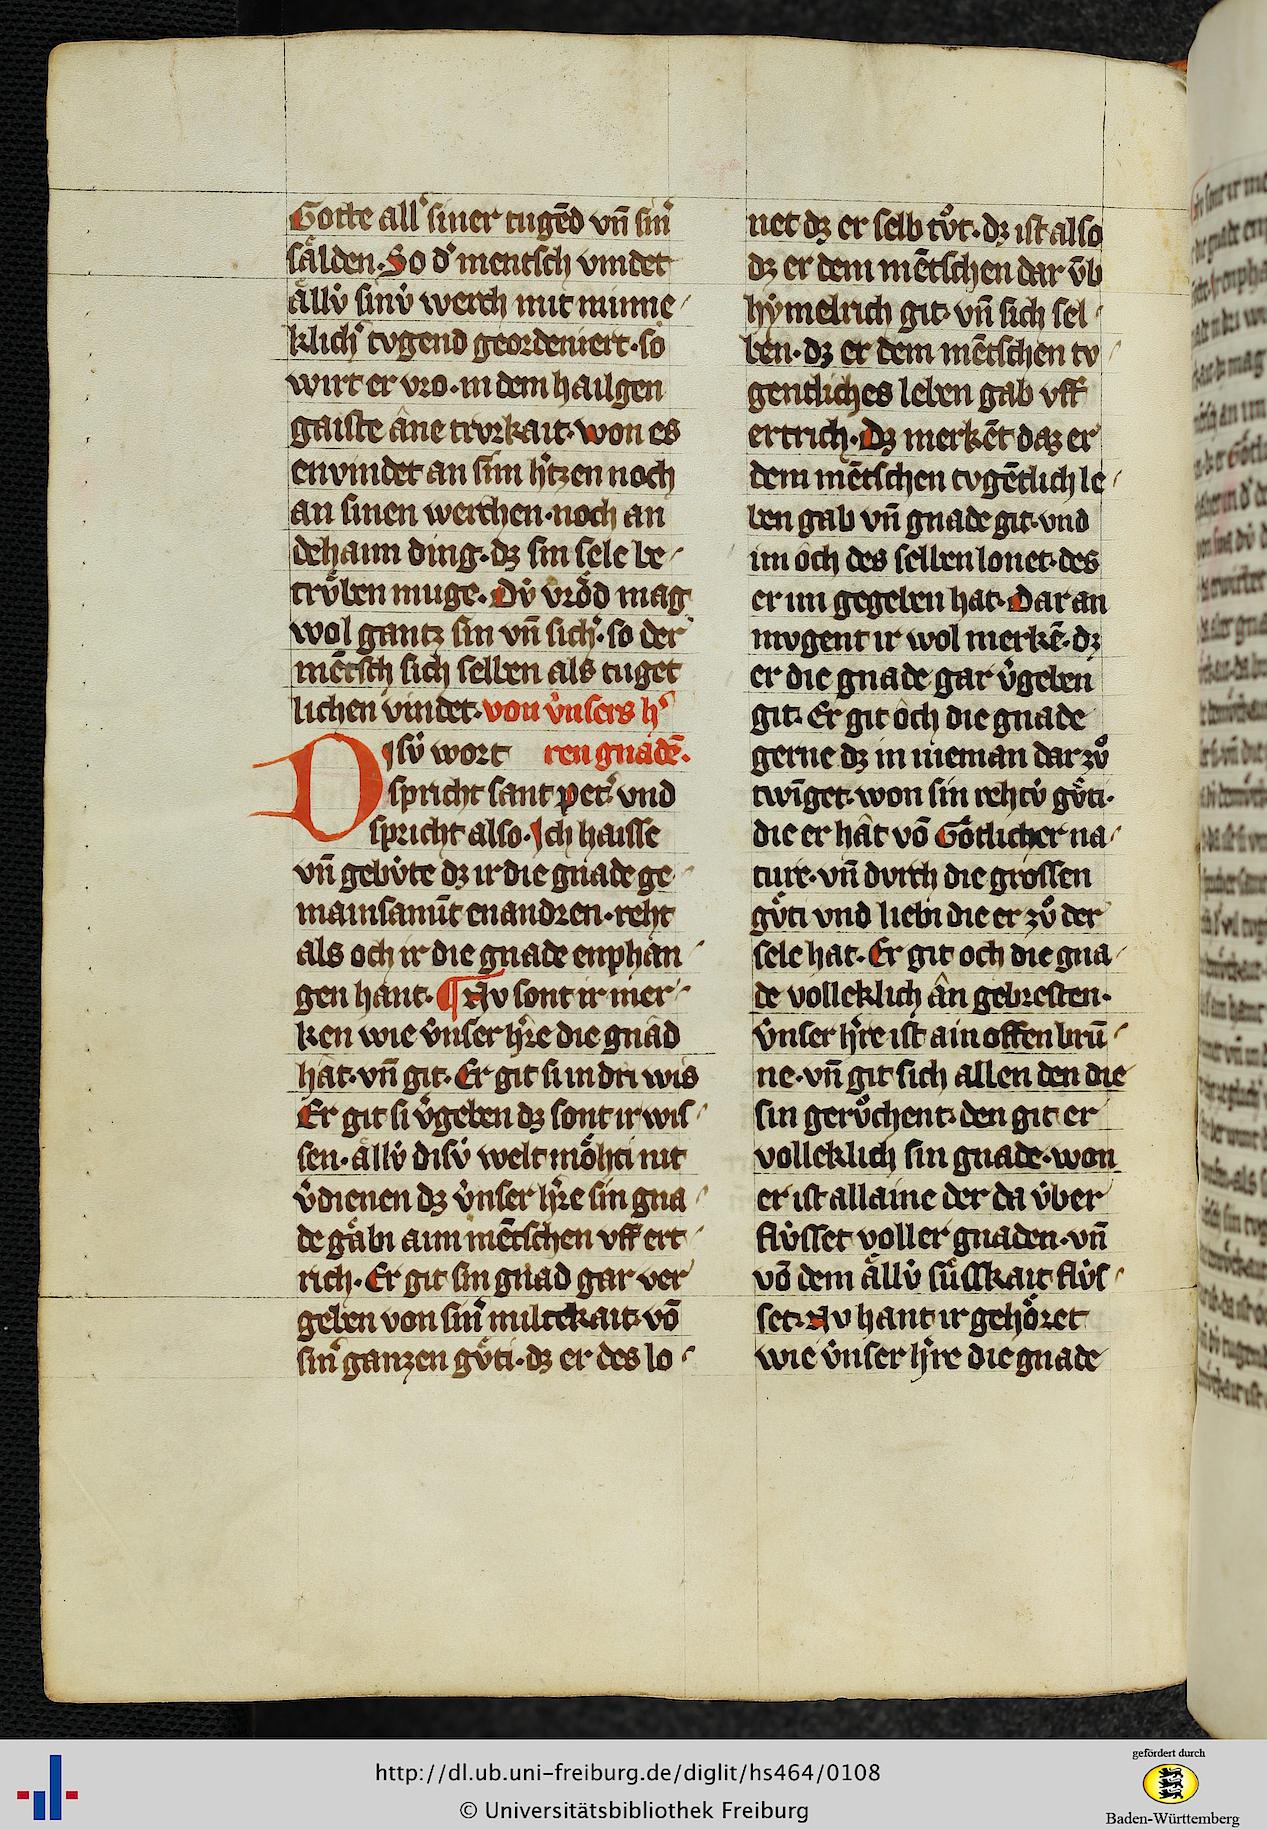 Gotte all͛ siner tugēd vn̄ sin͛
sålden. So d͛ mentsch vindet
ållv̍ sinv̍ werch mit minne
klich͛ tvgend geordeniert. so
wirt er vro. in dem hailgen
gaiste âne trvrkait. won es
envindet an sim h͛tzen noch
an sinen werchen. noch an
dehaim ding. dz sin sele be
trv̊ben muge. Dv̍ vrôd mag
wol gantz sin vn̄ sich͛. so der
mētsch sich selben als tuget
lichen vindet. von v̍nsers h͛
ren gnadē.
Disv̍ wort
spricht sant pet͛. vnd
spricht also. Ich haisse
vn̄ gebv̍te dz ir die gnade ge
mainsamūt enandren. reht
als och ir die gnade enphan
gen hant. ¶ Nv sont ir mer
ken wie v̍nser h͛re die gnâd
hât. vn̄ git. Er git si in dri wis
Er git si v͛geben dz sont ir wis
sen. ållv̍ disv̍ welt mo̊hti nit
v͛dienen dz v̍nser h͛re sin gna
de gåbi aim mētschen vff ert
rich. Er git sin gnad gar ver
geben von sin͛ miltekait. vō
sin͛ ganzen gv̊ti. dz er des lo
net dz er selb tv̊t. dz ist also
dz er dem mētschen dar v̄b
hẏmelrich git. vn̄ sich sel
ben. dz er dem mētschen tv
gentliches leben gab vff
ertrich. Dz merkēt daz er
dem mētschen tvgētlich le
ben gab vn̄ gnade git. vnd
im ôch des selben lonet. des
er im gegeben hat. Dar an
mvgent ir wol merkē. dz
er die gnade gar v͛geben
git. Er git ôch die gnade
gerne dz in nieman dar zv̊
twīget. won sin rehtv̍ gv̊ti.
die er hât vō Gôtlicher na
ture. vn̄ dvrch die grossen
gv̊ti vnd liebi die er zv̊ der
sele hat. Er git och die gna
de volleklich ân gebresten.
v̍nser h͛re ist ain offen brū
ne. vn̄ git sich allen den die
sin gerv̊chent. den git er
volleklich sin gnade. won
er ist allaine der da v̍ber
flv̍sset voller gnaden. vn̄
vō dem ållv̍ sv̊sskait flv̍s
set. Nv hant ir gehôret
wie v̍nser h͛re die gnade
http://dl.ub.uni-freiburg.de/diglit/hs464/0108
© Universitätsbibliothek Freiburg
gefördert durch
Baden-Württemberg